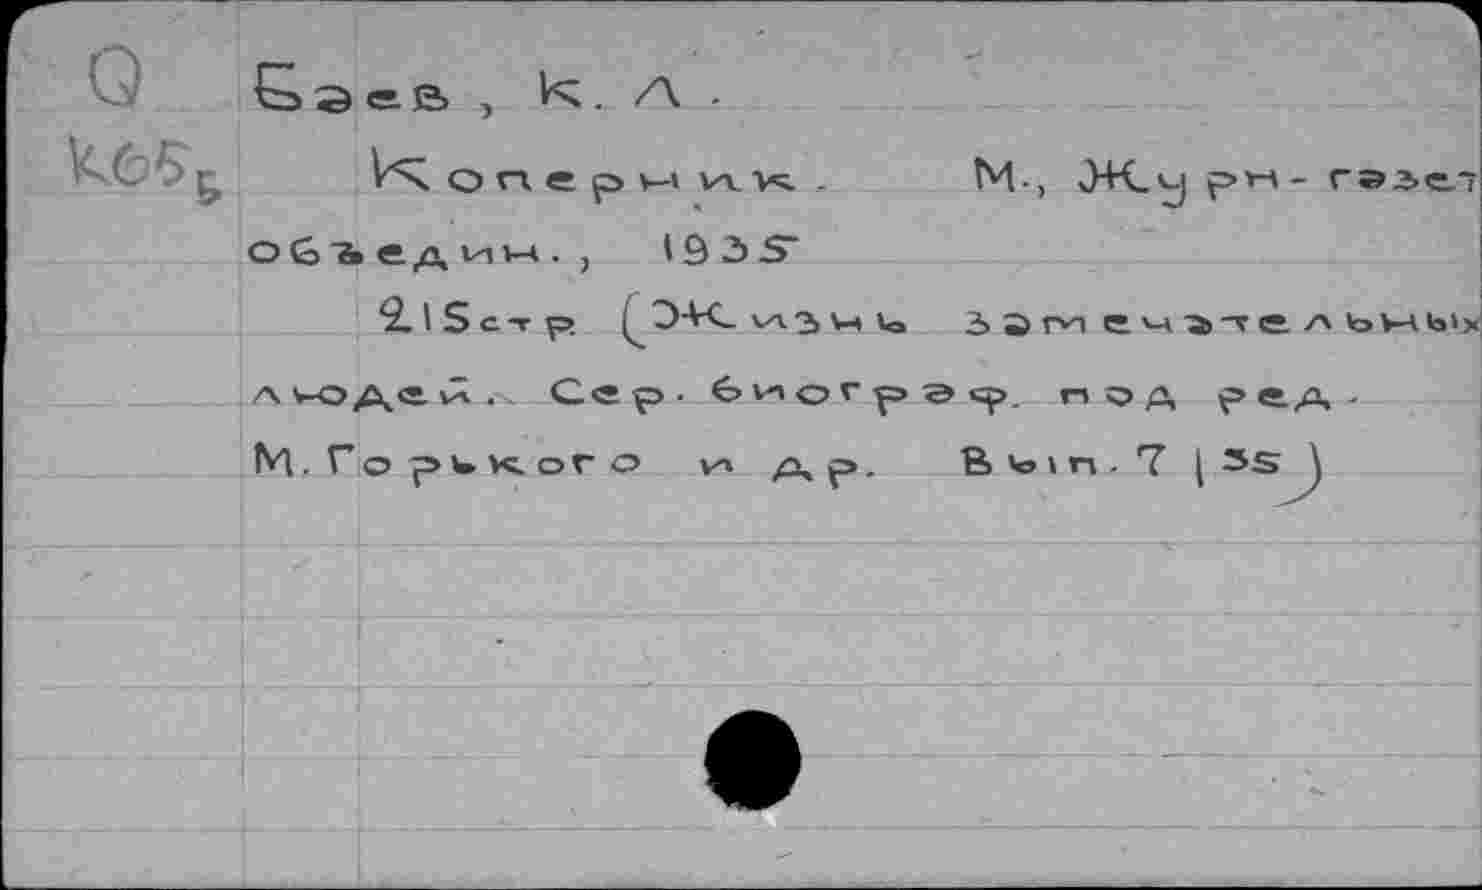 Q Баев, К. Л.
К65Б Коперник. М., Журн-газет
объедин., 1935
215стр. (Жизнь замечательных
людей. Сер. биограф. под ред.
М. Горького и др. Вып. 7 |35)